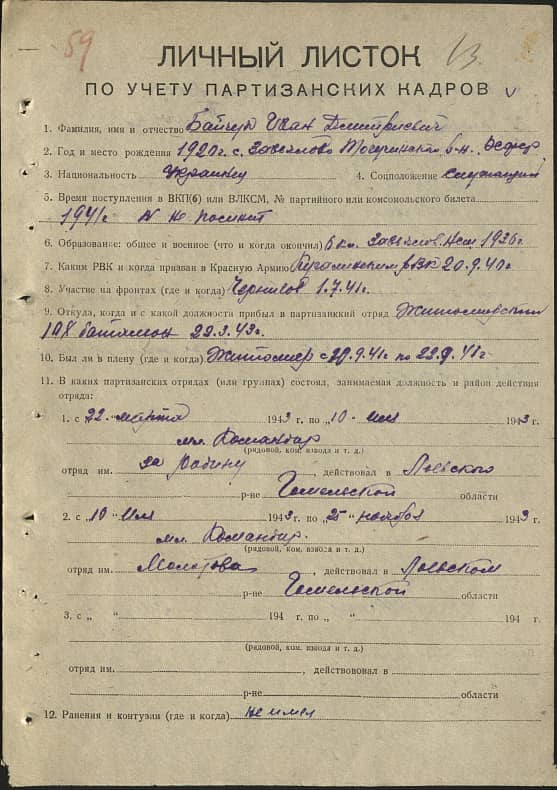 59
13
ЛИЧНЫЙ ЛИСТОК
ПО УЧЕТУ ПАРТИЗАНСКИХ КАДРОВ
1. Фамилия, имя и отчество Байчук Иван Дмитриевич
2. Год и место рождения 1920г. с. Завьялово р-н.
3. Национальность Украинец 4. Соцположение служащий
5. Время поступления в ВКП(б) или ВЛКСМ, № партийного или комсомольского билета
1941г. № не помнит
6. Образование: общее и военное (что и когда окончил) 6 кл. Завьялов. 1936г.
7. Каким РВК и когда призван в Красную Армию РВК 20.9.40г.
8. Участие на фронтах (где и когда) Чернигов 1.7.41г.
9. Откуда, когда и с какой должности прибыл в партизанкий отряд Житомирский
батальон 22.3.43г.
10. Был ли в плену (где и когда) Житомир с 9.41г. по 22.9.41г
11. В каких партизанских отрядах (или группах) состоял, занимаемая должность и район действия
отряда:
1. с „22“ марта 1943 г. по „10“ мая 1943 г.
мл. Командир
(рядовой, ком. взвода и т. д.)
отряд им. За Родину, действовал в Лоевского
р-не Гомельской области
2. с „10“ мая 1943 г. по „25“ ноября 1943 г.
мл. Командир
(рядовой, ком. взвода и т. д.)
отряд им. Молотова, действовал в Лоевском
р-не Гомельской области
3. с „ “ 194 г. по „ “ 194 г.
(рядовой, ком. взвода и т. д.)
отряд им. , действовал в
р-не области
12. Ранения и контузии (где и когда) не имел